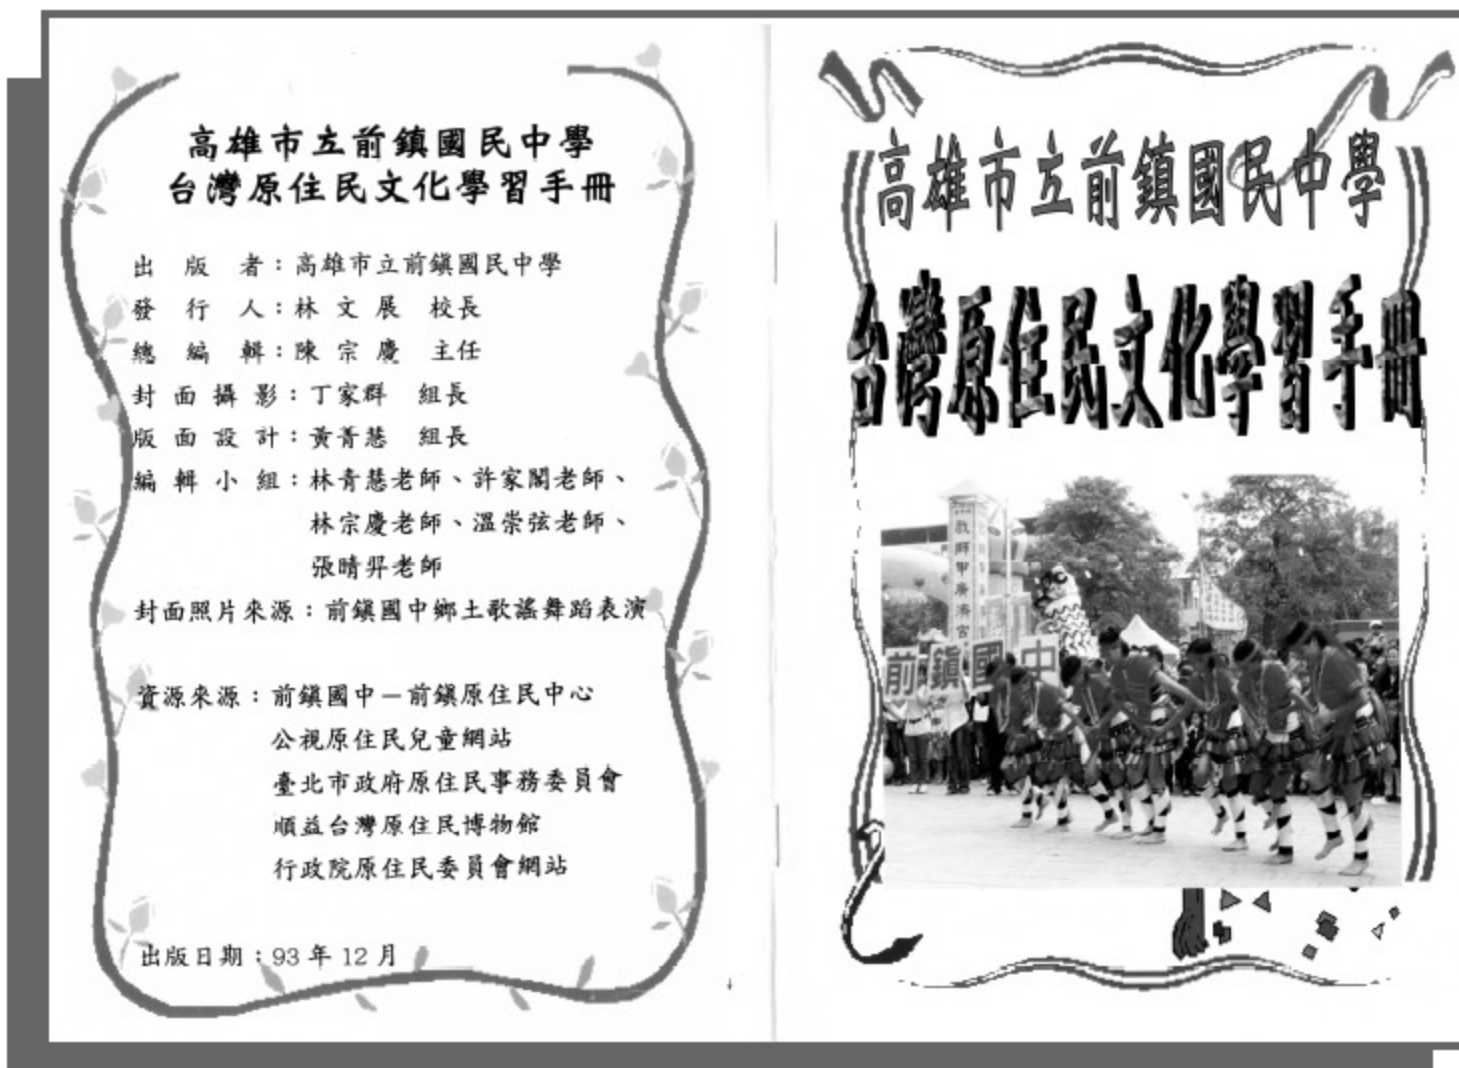 高雄市立前鎮國民中學
台灣原住民文化學習手冊
出版者：高雄市立前鎮國民中學
發行人：林文展 校長
總編輯：陳宗慶 主任
封面攝影：丁家群 組長
版面設計：黃菁慧 組長
編輯小組：林青慧老師、許家閣老師、
林宗慶老師、溫崇弦老師、
張晴羿老師
封面照片來源：前鎮國中鄉土歌謠舞蹈表演
資源來源：前鎮國中－前鎮原住民中心
公視原住民兒童網站
臺北市政府原住民事務委員會
順益台灣原住民博物館
行政院原住民委員會網站
出版日期：93 年 12 月
高雄市立前鎮國民中學
台灣原住民文化學習手冊
獅甲廣濟宮
前鎮國中